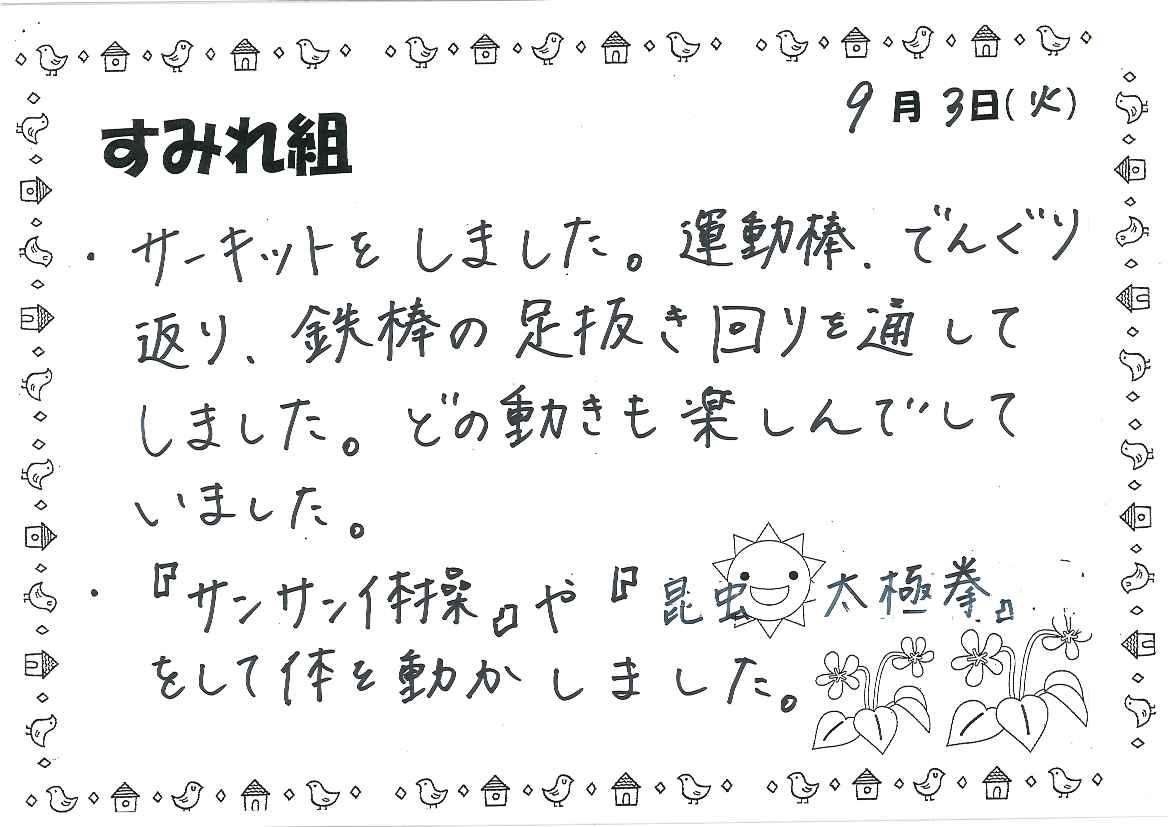 9月3日(火)
すみれ組
・サーキットをしました。運動棒、でんぐり
返り、鉄棒の足抜き回りを通して
しました。どの動きも楽しんでして
いました。
・『サンサン体操』や『昆虫太極拳』
をして体を動かしました。